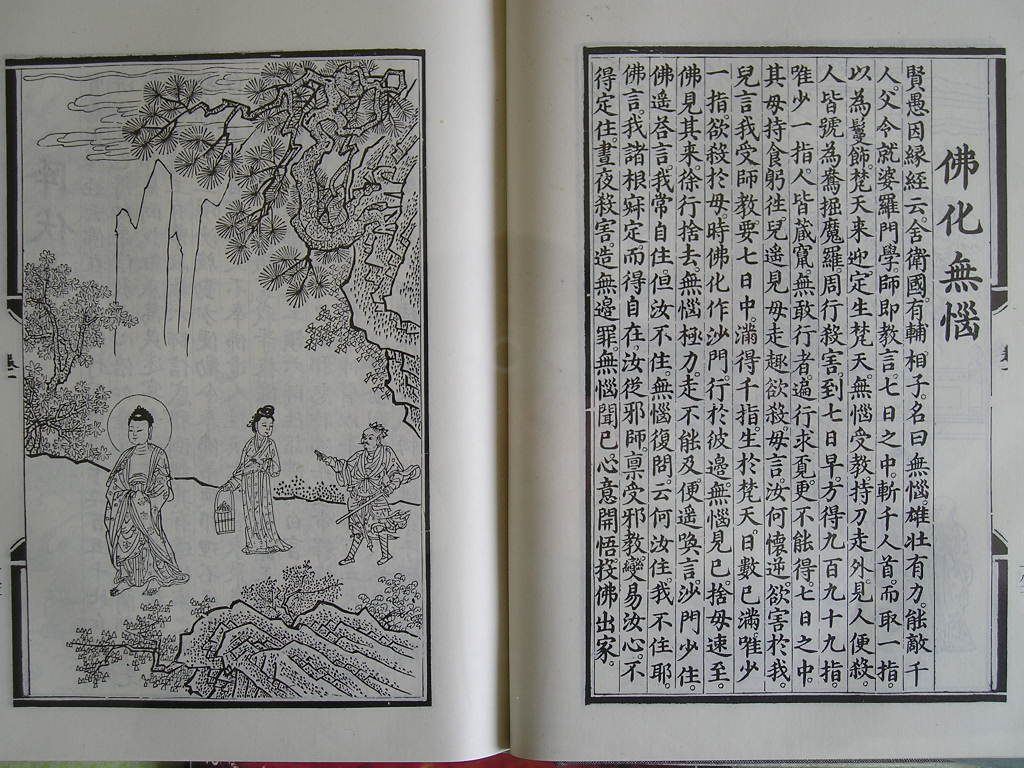 佛化無惱
賢愚因緣經云。舍衛國。有輔相子。名曰無惱。雄壯有力。能敵千
人。父令就婆羅門學。師即教言。七日之中。斬千人首。而取一指。
以為鬘飾。梵天來迎。定生梵天。無惱受教。持刀走外。見人便殺。
人皆號為鴦掘魔羅。周行殺害。到七日早。方得九百九十九指。
唯少一指。人皆藏竄。無敢行者。遍行求覓。更不能得。七日之中。
其母持食。躬往兒遙見母走趣欲殺。母言。汝何懷逆。欲害於我。
兒言我受師教。要七日中。滿得千指。生於梵天。日數已滿。唯少
一指。欲殺於母。時佛化作沙門。行於彼邊。無惱見已。捨母速至。
佛見其來。徐行捨去。無惱極力。走不能及。便遙喚言。沙門少住。
佛遙答言。我常自住。但汝不住。無惱復問。云何汝住。我不住耶。
佛言。我諸根寂定。而得自在。汝從邪師。稟受邪教。變易汝心。不
得定住。晝夜殺害。造無邊罪。無惱聞已。心意開悟。投佛出家。